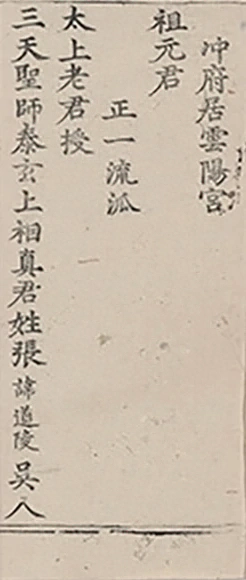 冲府居雲陽宮
祖元君
正一流泒
太上老君授
三天聖師泰玄上相真君姓張諱道陵吳人